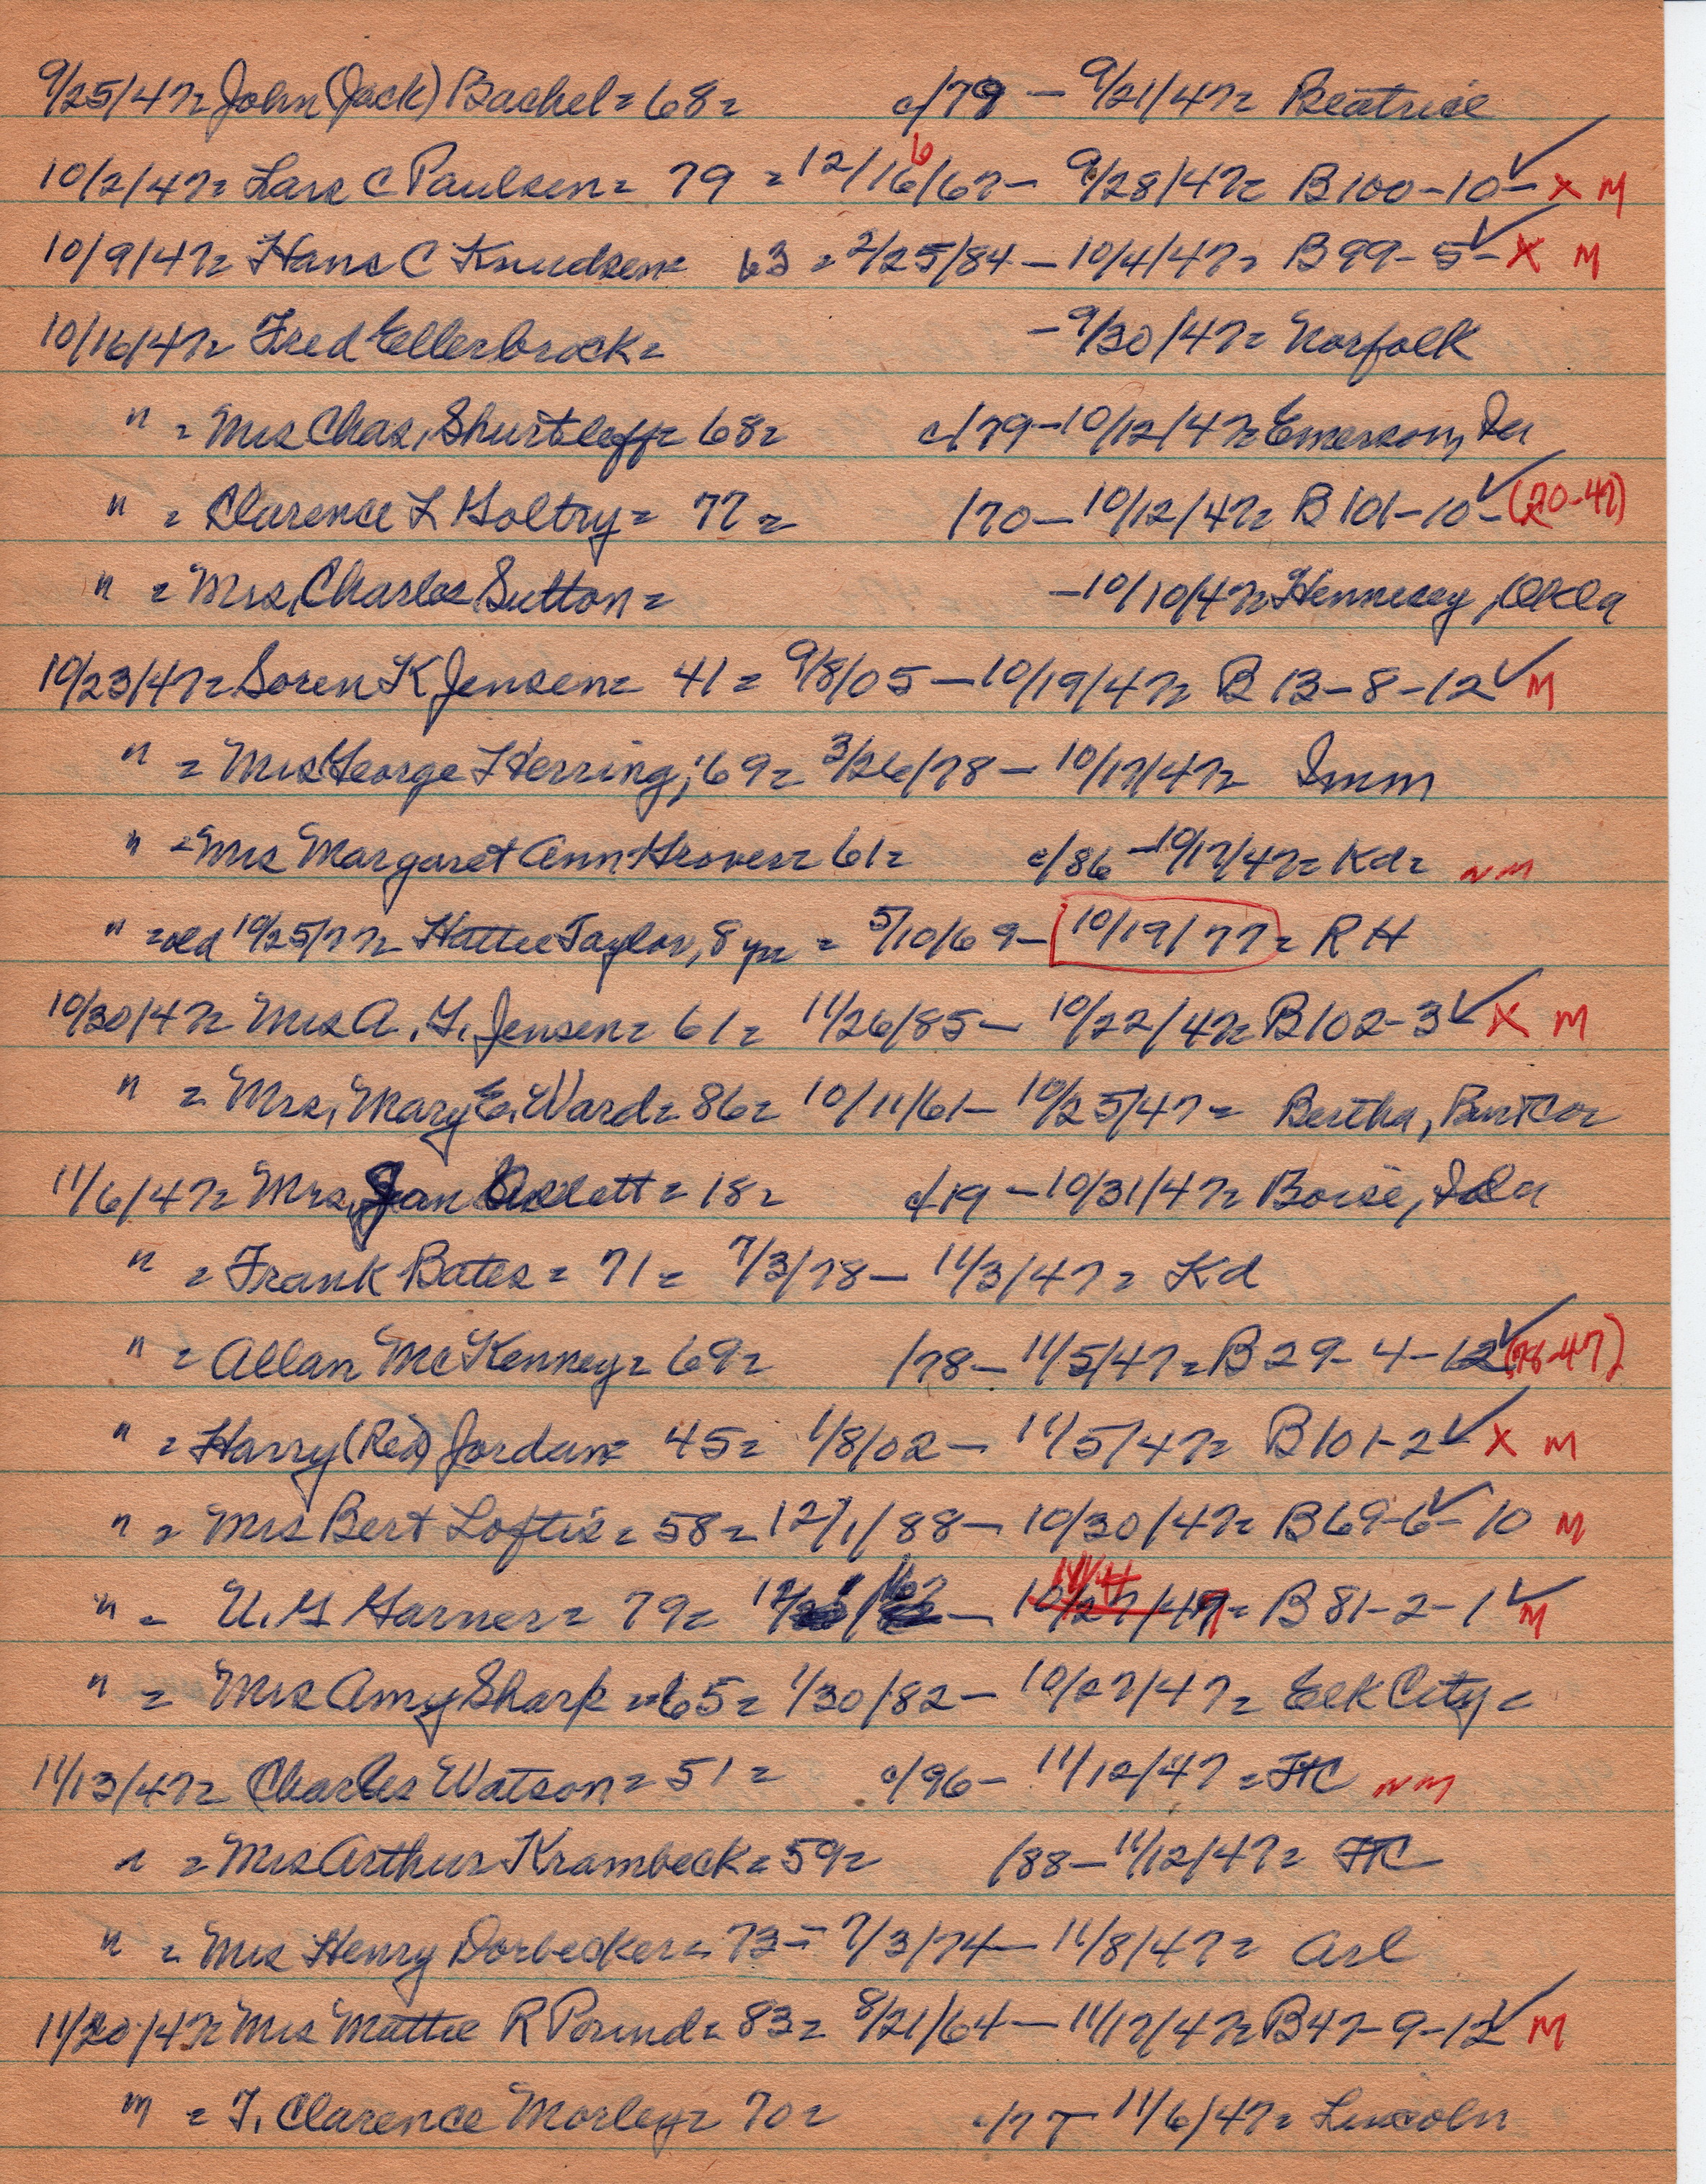 9/25/47= John (Jack) Bachel= 68= c/79 - 9/21/47= Beatrice
10/2/47= Lars C Paulsen= 79 = 12/16/67- 6 9/28/47= B100-10- ✓ X M
10/9/47= Hans C Knudsen= 63 = 2/25/84 - 10/4/47= B99-5- ✓ X M
10/16/47= Fred Ellerbrock= - 9/30/47= Norfolk
" = Mrs Chas, Shurtleff= 68= c/79-10/12/47= Emerson, Ia
" = Clarence L Holtry= 77= /70-10/12/47= B101-10- ✓ (70-47)
" = Mrs, Charles Sutton= -10/10/47= Hennesey, Okla
10/23/47= Soren K Jensen= 41= 9/8/05-10/19/47= B13-8-12 ✓ M
" = Mrs George Herring; 69= 3/26/78- 10/17/47= Imm
" = Mrs Margaret Ann Grover= 61= c/86 -10/17/47= Kd= NM
" =old 10/25/77= Hattie Taylor, 8yr = 5/10/69- 10/19/77= RH
10/30/47= Mrs A. G. Jensen= 61= 11/26/85- 10/22/47= B102-3 ✓ X M
" = Mrs, Mary E. Ward= 86= 10/11/61- 10/25/47= Bertha, BurtCo=
11/6/47= Mrs, Jean = 18= c/19 -10/31/47= Boise, Ida
" = Frank Bates= 71= 7/3/78- 11/3/47= Kd
" = Allan McKenney= 69= /78- 11/5/47= B29-4-12 ✓ (78-47)
" = Harry (Red) Jordan= 45= 1/8/02- 11/5/47= B101-2 ✓ X M
" = Mrs Bert Loftis= 58= 12/1/88- 10/30/47= B69-6-10 ✓ M
" = U. G Garner= 79= - 10/27/47= B81-2-1 ✓ M
" = Mrs Amy Sharp =65= 1/30/82- 10/27/47= Elk City=
11/13/47= Charles Watson= 51= c/96- 11/12/47= FtC NM
" = Mrs Arthur Krambeck= 59= /88-11/12/47= FtC
" = Mrs Henry Dorbecker= 73= 7/3/74- 11/8/47= Arl
11/20/47= Mrs Mattie R Pound= 83= 8/21/64-11/17/47= B47-9-12 ✓ M
" = F. Clarence Morley= 70= c/77- 11/6/47= Lincoln